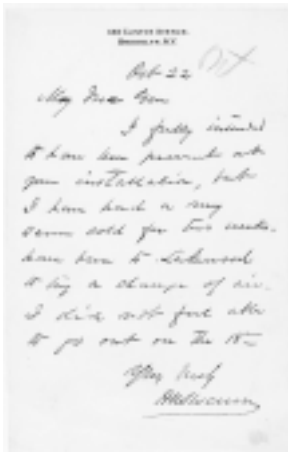 Clinton Avenue,
Brooklyn, N.Y.
Oct 22
My Dear Gen
I fully intended
to have been present at
your installation, but
I have had a very
severe cold for two weeks.
have been to Lakewood
to try a change of air.
I did not feel able
to go out on the 15
Yours truly
HWSlocum